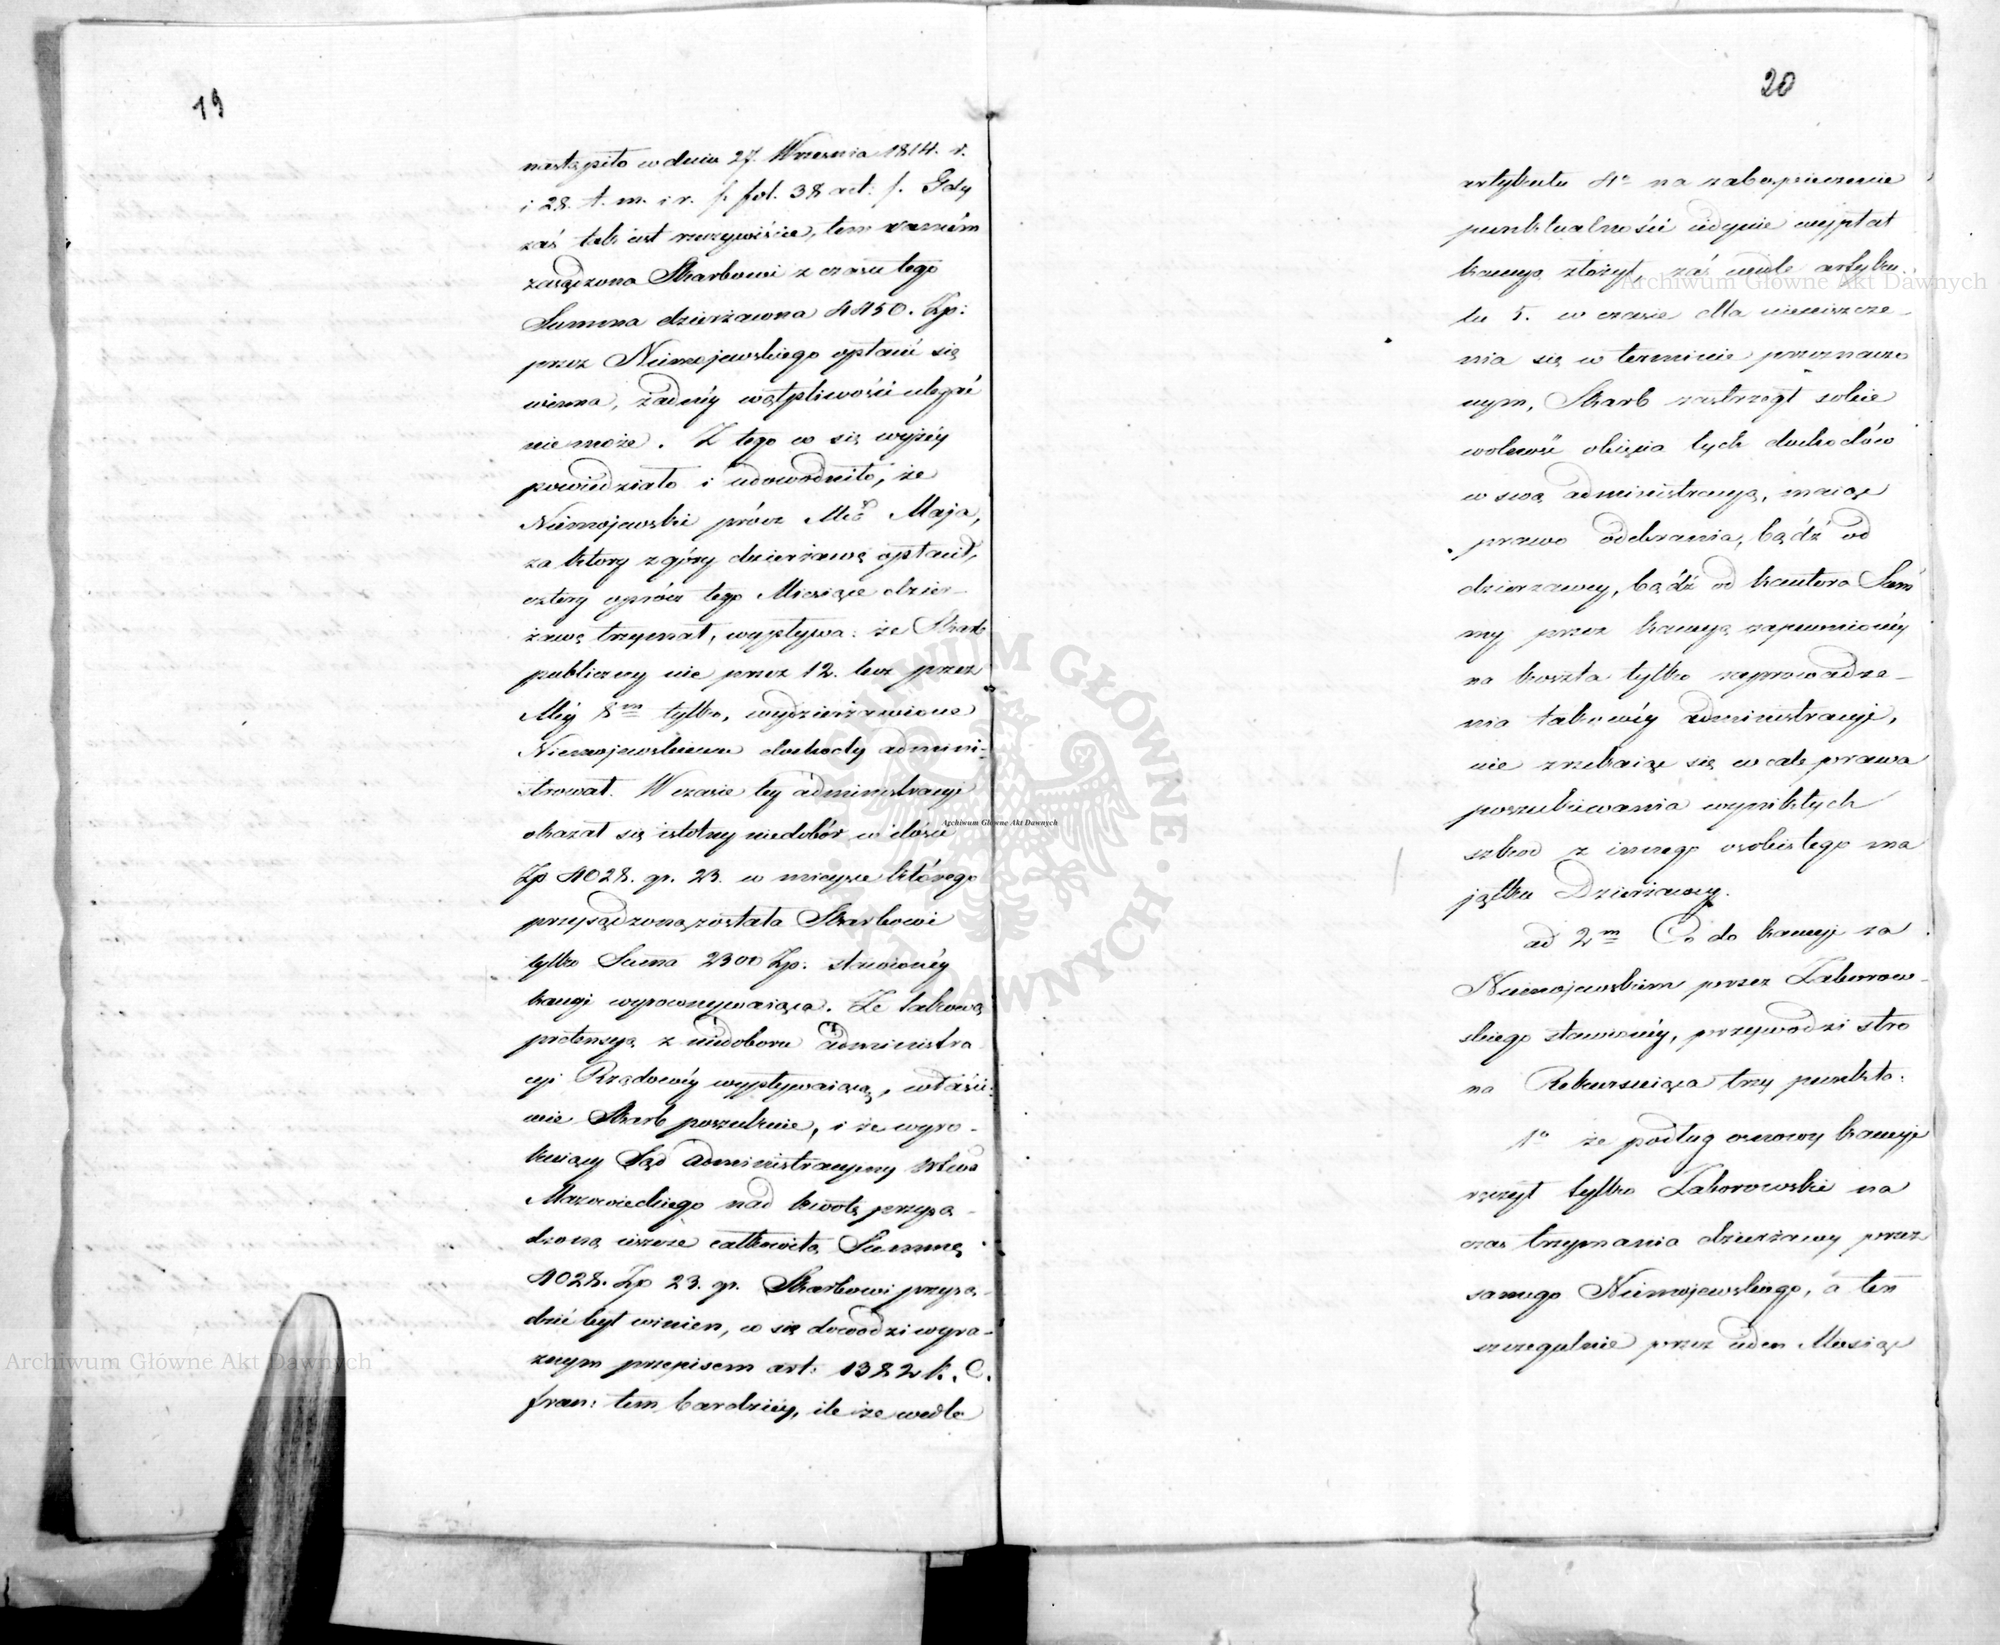 19
nastąpiło w dniu 27. Września 1814. r.
i 28. t. m. i r. f. fol. 38 act: f. Gdy
zaś tak iest rzeczywiście, tem samém
zasądzona Skarbowi z czasu tego
Summa dzierżawna 4450. Zp:
przez Niemojewskiego opłacić się
winna, żadnéy wątpliwości ulegać
nie może. Z tego co się wyżéy
powiedziało i udowodniło, że
Niemojewski prócz Mca Maja,
za ktory z góry dzierżawę opłacił,
cztery oprócz tego Miesiące dzier-
żawę trzymał, wypływa: że Skarb
publiczny nie przez 12. lecz przez
Mcy 8m tylko, wydzierżawione
Niemojewskiemu dochody admini-
strował. W czasie téy administracyi
okazał się istotny niedobór w ilości
Zp 4028. gr. 23. w mieysce którego
przysądzoną została Skarbowi
tylko Suma 2300 Zp: stawionéy
kaucyi wyrownywaiąca. Że takową
pretensyą z niedoboru administra
cyi Rządowéy wypływaiącą, właści-
wie Skarb poszukuie, i że wyro-
kuiący Sąd administracyiny Wdwa
Mazowieckiego nad kwotę przysą-
dzoną ieszcze całkowitą Summę
4028. Zp 23. gr. Skarbowi przysą-
dzić był winien, co się dowodzi wyra-
znym przepisem art: 1382 k. C.
fran: tem bardziéy, ile że wedle
20
artykułu 4o na zabespieczenie
punktualności iedynie wypłat
kaucyą złożył, zaś wedle artyku-
łu 5. w czasie dla nieuiszcze-
nia się w terminie przeznaczo
nym, Skarb zastrzegł sobie
wolność obięcia tych dochodów
w swą administracyą, maiąc
prawo odebrania, bądź od
dzierzawcy, bądź od kautora Sum
my przez kaucyą zapewnionéy
na koszta tylko zaprowadze-
nia takowéy administracyi,
nie zrzekaiąc się w cale prawa
poszukiwania wynikłych
szkod z innego osobistego ma
jątku Dzierżawcy.
ad 2m Co do kaucyi za
Niemojewskim przez Zaborow-
skiego stawionéy, przywodzi stro
na Rekursuiąca trzy punkta:
1o że podług osnowy kaucyi
ręczył tylko Zaborowski na
czas trzymania dzierżawy przez
samego Niemojewskiego, a ten
szczegulnie przez ieden Miesiąc
Archiwum Główne Akt Dawnych
Archiwum Główne Akt Dawnych
Archiwum Główne Akt Dawnych
ARCHIWUM GŁÓWNE AKT DAWNYCH